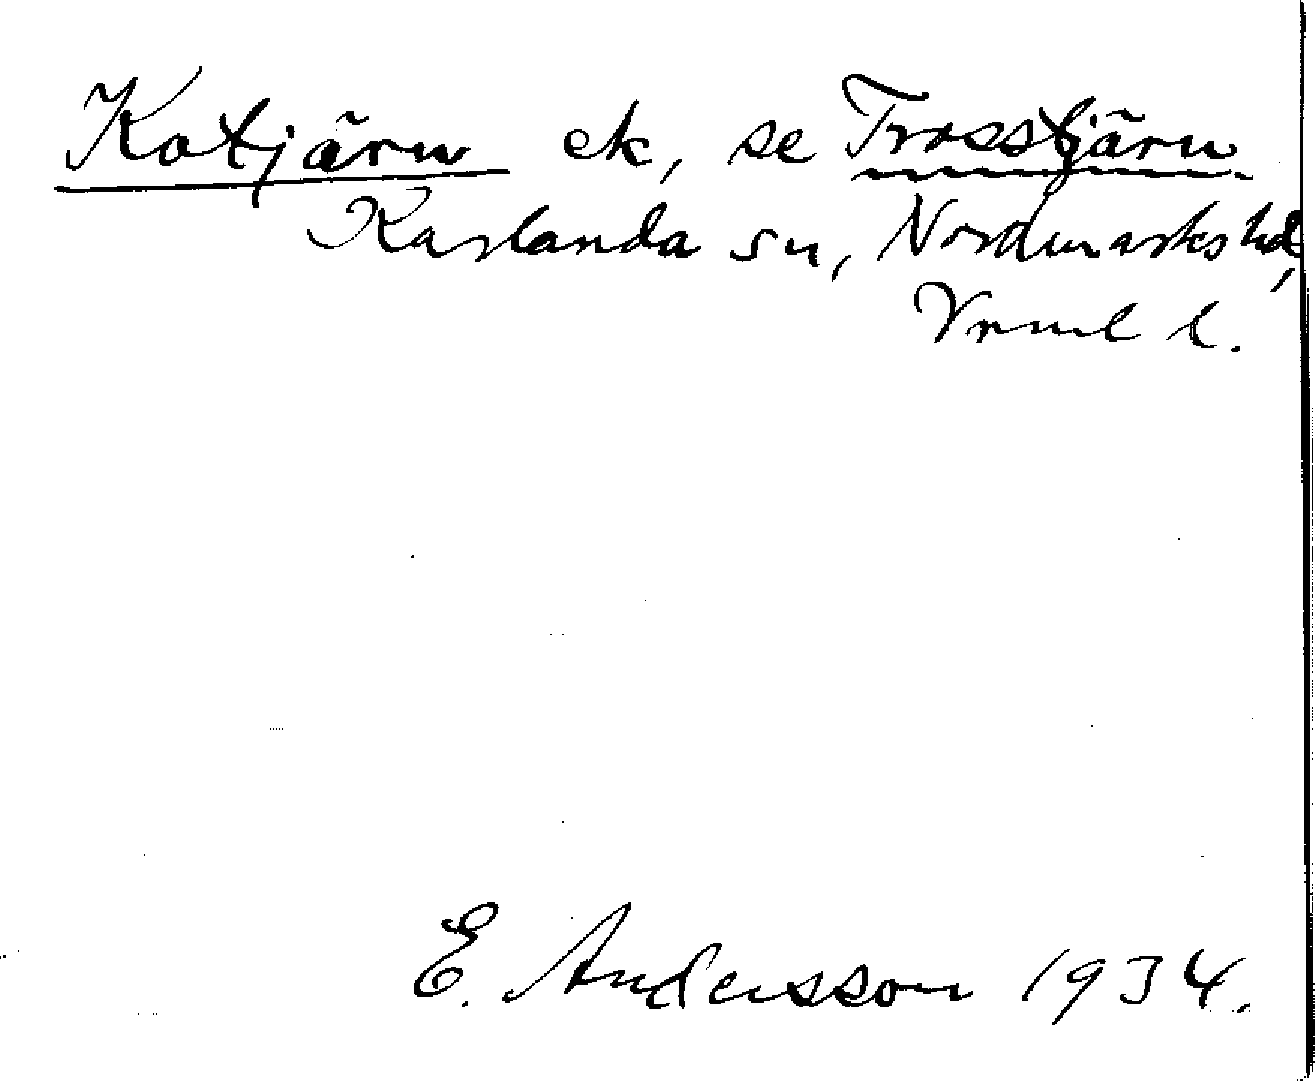 Kotjärn ek, se Trosstjärn
Karlanda sn, Nordmarks hd,
Vrml l.
E. Andersson 1934.